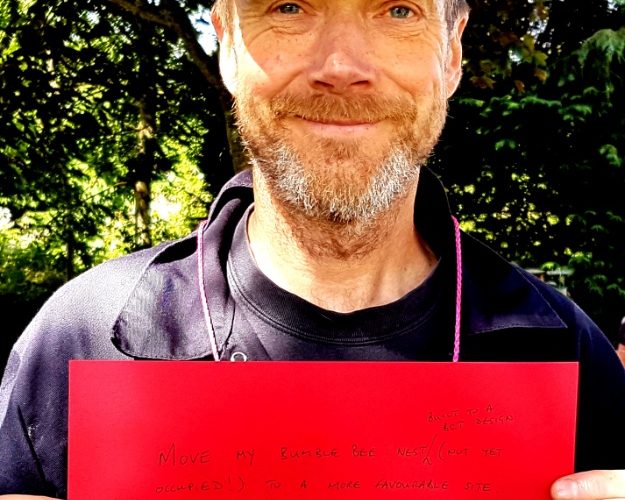 BUILT TO A
BBT DESIGN
MOVE MY BUMBLE BEE NEST (NOT YET
OCCUPIED!) TO A MORE FAVOURABLE SITE